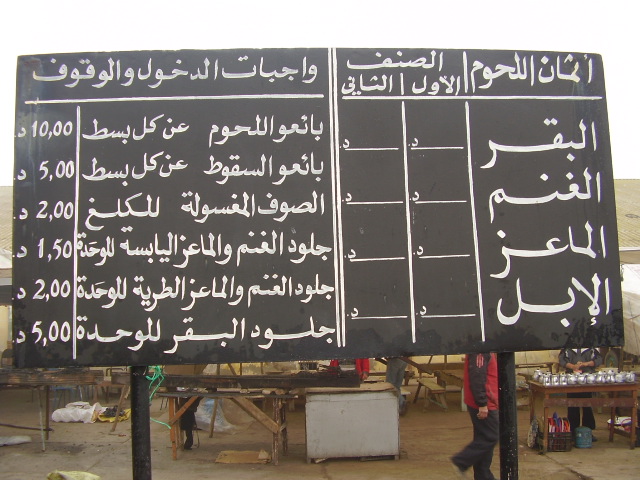 أثمان اللحوم
الصنف
الأول الثاني
البقر د. د.
الغنم د. د.
الماعز د. د.
الإبل د. د.
واجبات الدخول والوقوف
بائعو اللحوم عن كل بسط 10,00 د.
بائعو السقوط عن كل بسط 5,00 د.
الصوف المغسولة للكلغ 2,00 د.
جلود الغنم والماعز اليابسة للوحدة 1,50 د.
جلود الغنم والماعز الطرية للوحدة 2,00 د.
جلود البقر للوحدة 5,00 د.